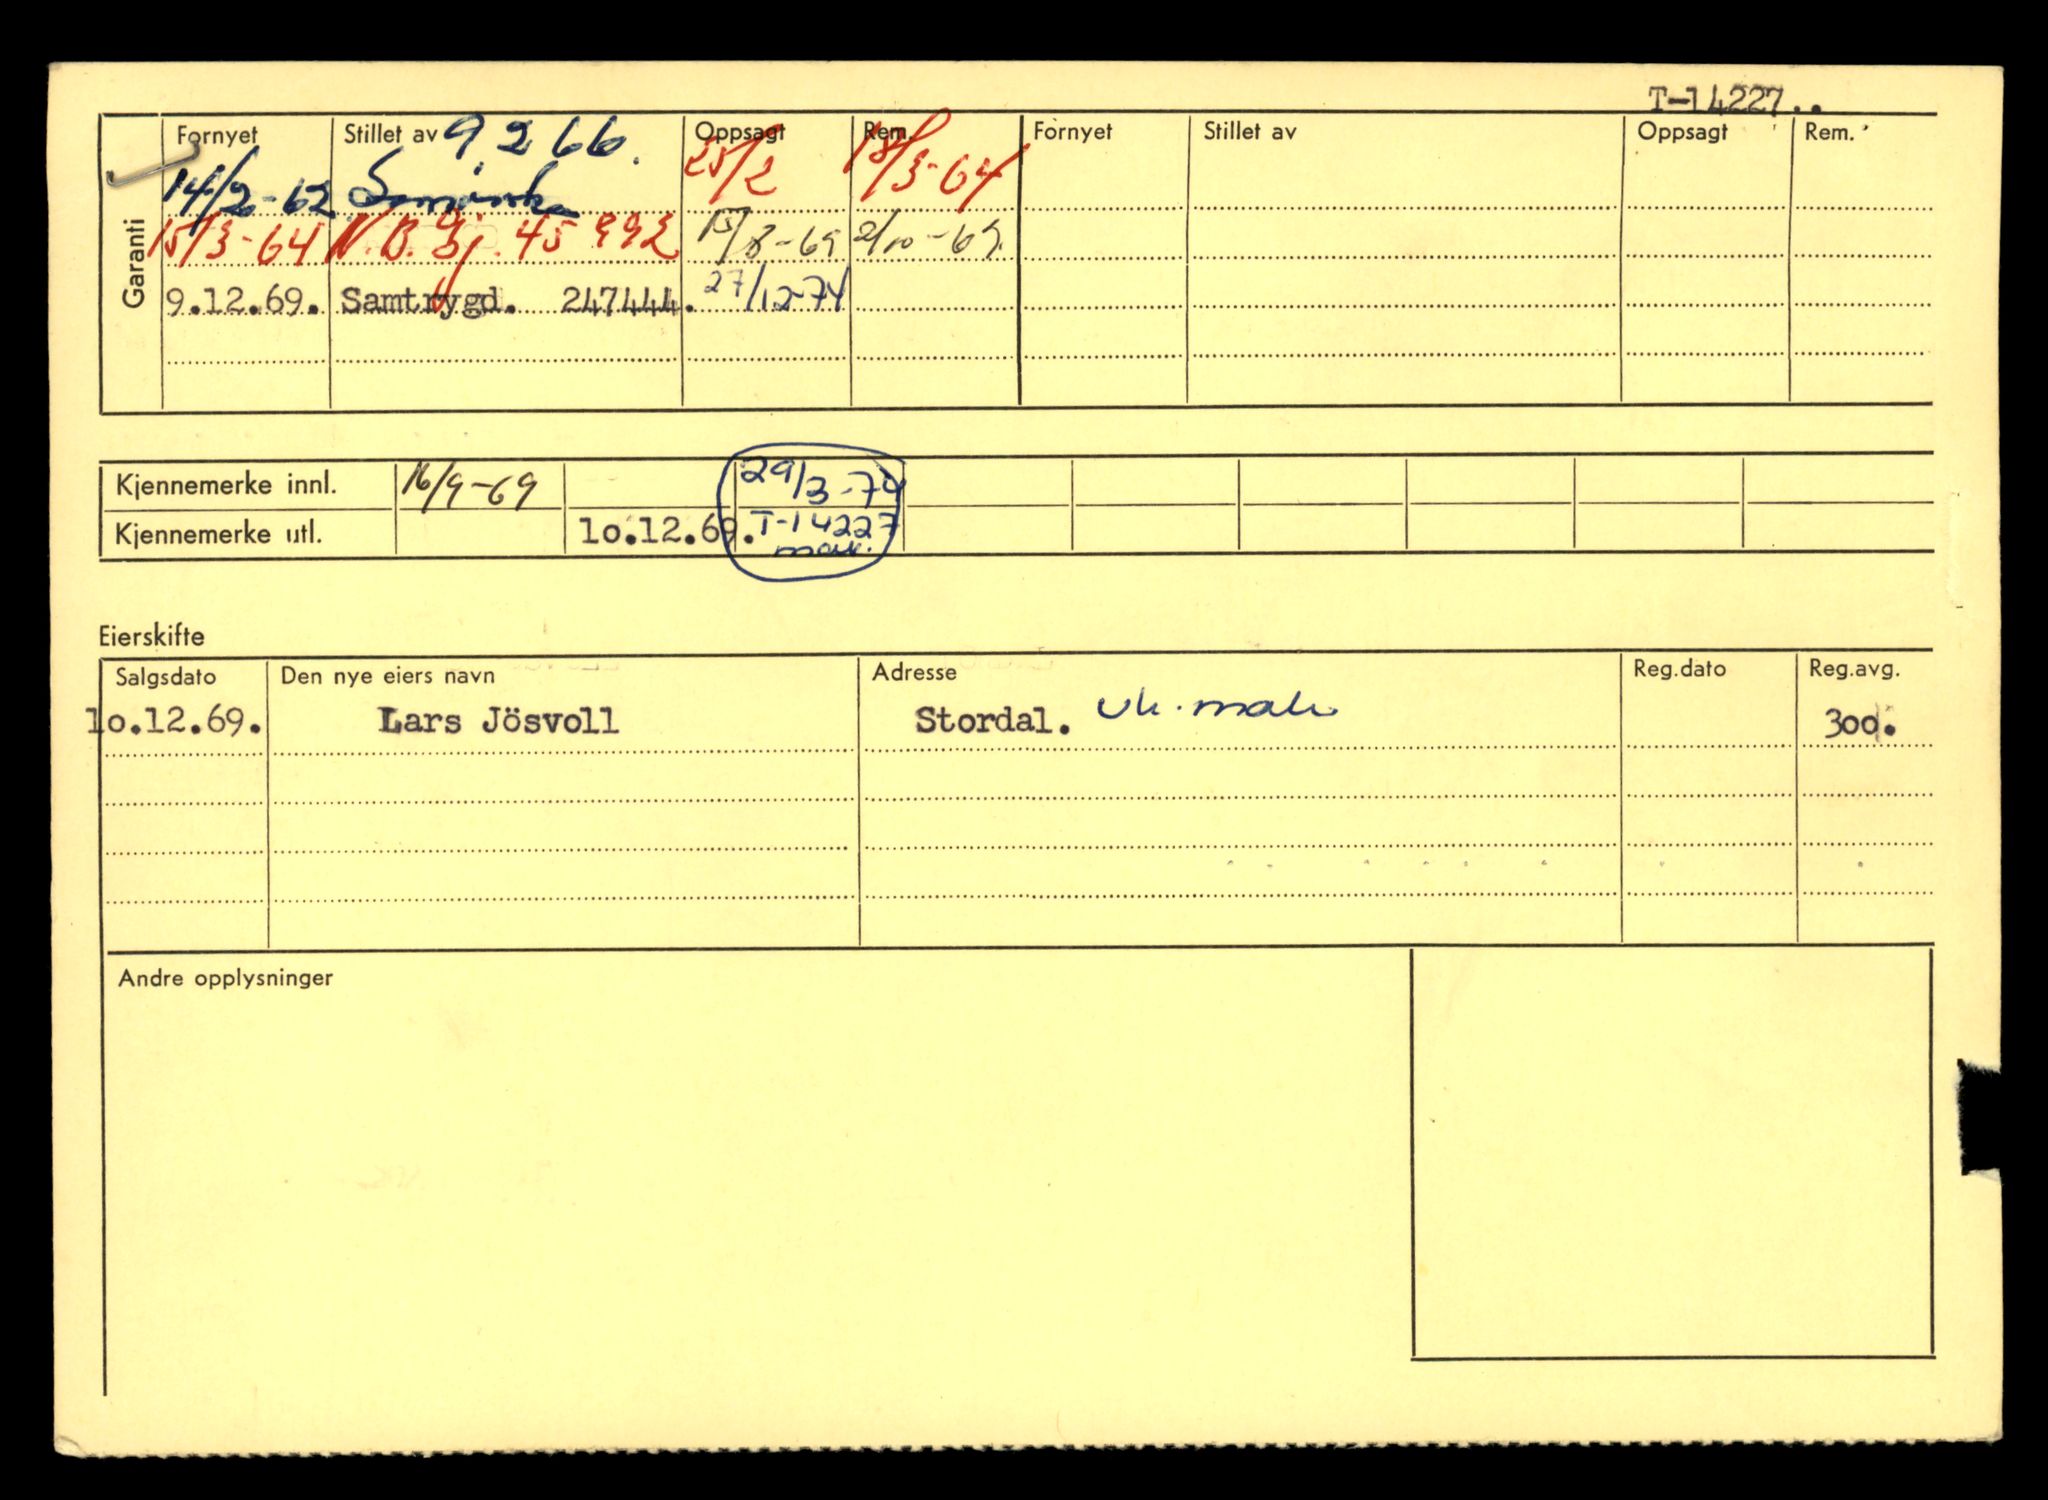 T-14227..
Garanti
Fornyet Stillet av 9266. Oppsagt Rem. Fornyet Stillet av Oppsagt Rem.
14/2-62 25/2 18/3-64
15/3-64 N.B. 45 992 15/8-69 2/10-69.
9.12.69. Samtrygd. 247444. 27/12-74
Kjennemerke innl. 16/9-69 29/3-74
Kjennemerke utl. 10.12.69. T-14227
Eierskifte
Salgsdato Den nye eiers navn Adresse Reg.dato Reg.avg.
10.12.69. Lars Jösvoll Stordal. 300.
Andre opplysninger